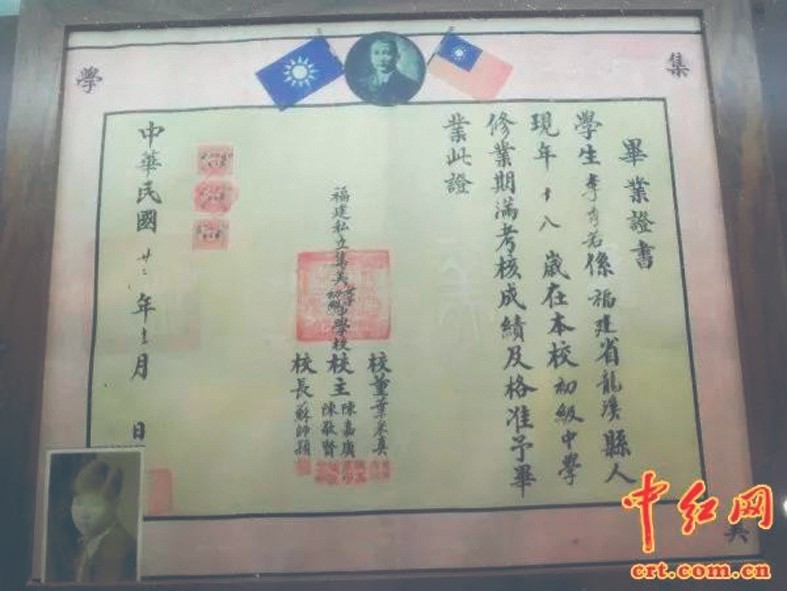 集
學
畢業證書
學生李若係福建省龍溪縣人
現年十八歲在本校初級中學
修業期滿考核成績及格准予畢
業此證
校董葉采真
校主陳嘉庚
陳敬賢
校長蘇師穎
福建私立集美初級中學校
中華民國廿二年月日
美
中红网
crt.com.cn